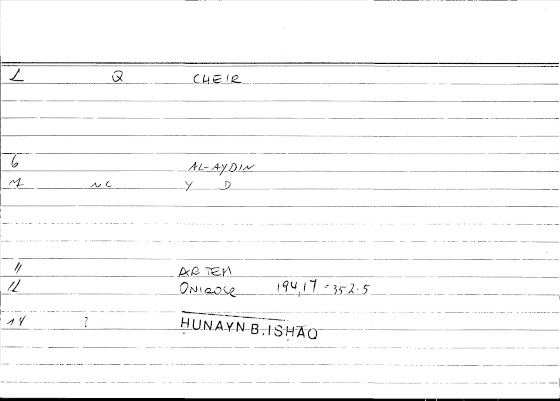 1 Q CHEIR
6 AL-AYDIN
7 NC Y D
11 ARTEM
12 ONIROCR 194,17 = 352.5
14 ? HUNAYN B. ISHAQ